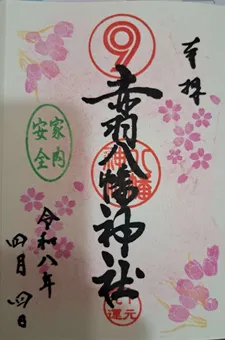 奉拝
9
赤羽八幡神社
家内
安全
令和八年
四月四日